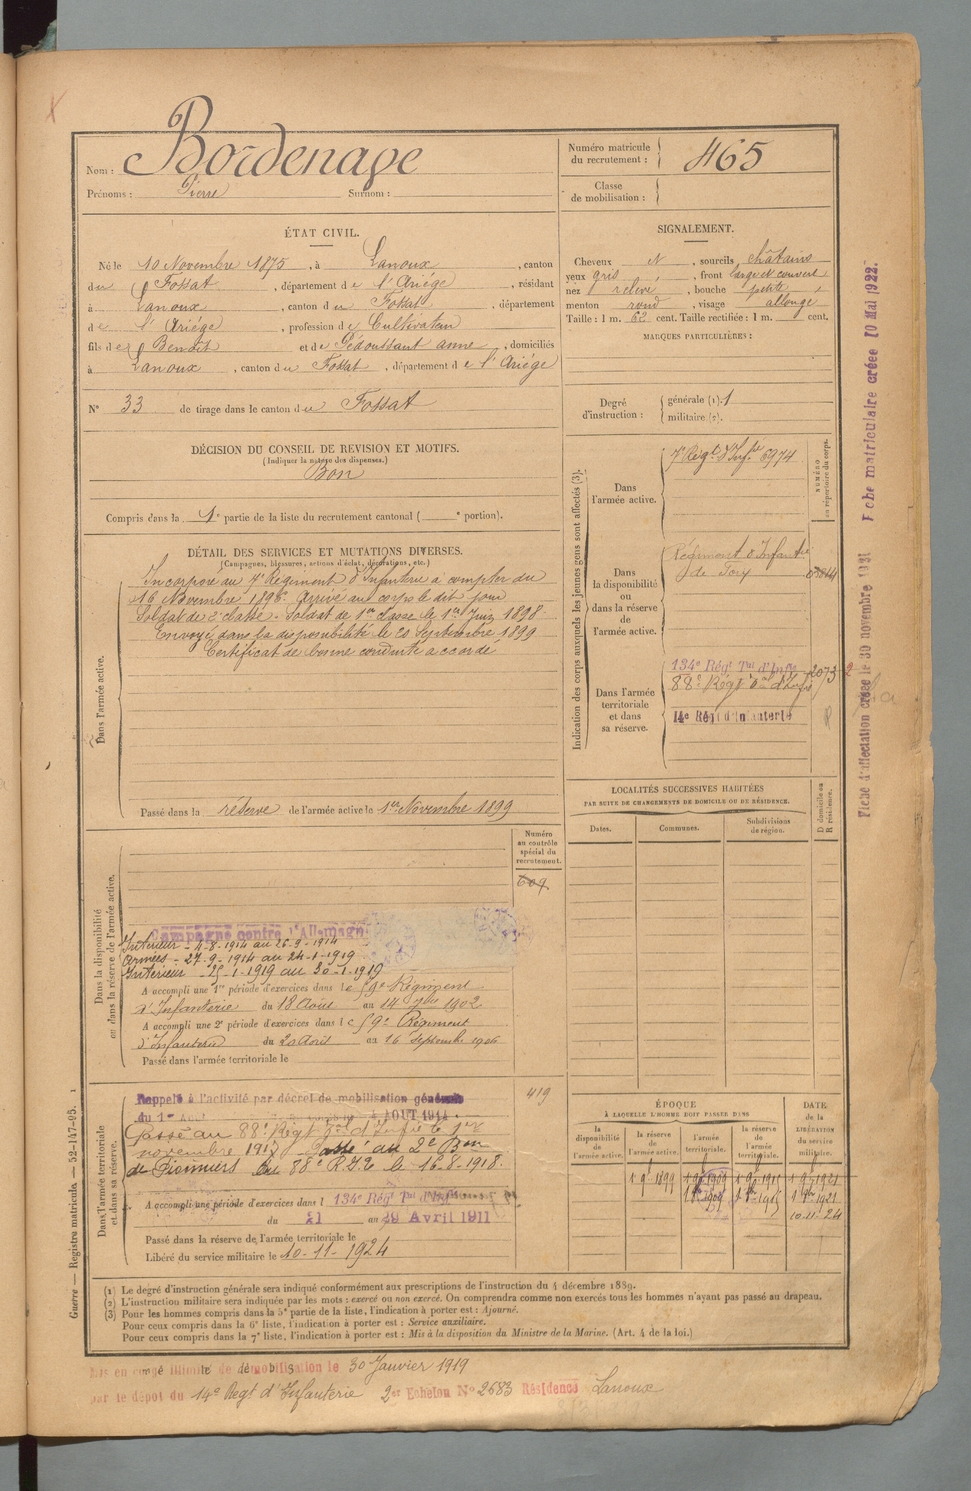 Nom : Bordenave
Prénoms : Pierre Surnom :
Numéro matricule du recrutement : 465
Classe de mobilisation :
ÉTAT CIVIL.
Né le 10 Novembre 1875, à Lanoux, canton
du Fossat, département de l'Ariège, résidant
à Lanoux, canton du Fossat, département
de l'Ariège, profession de Cultivateur
fils de Benoît et de Pédoussaut anne, domiciliés
à Lanoux, canton du Fossat, département de l'Ariège
N° 33 de tirage dans le canton du Fossat
SIGNALEMENT.
Cheveux N, sourcils châtains
yeux gris, front large et couvert
nez relevé, bouche petite
menton rond, visage allongé
Taille : 1 m. 62 cent. Taille rectifiée : 1 m. cent.
MARQUES PARTICULIÈRES :
Degré d'instruction : générale (1). 1
militaire (2).
DÉCISION DU CONSEIL DE REVISION ET MOTIFS.
(Indiquer la nature des dispenses.)
Bon
Compris dans la 1e partie de la liste du recrutement cantonal ( e portion).
DÉTAIL DES SERVICES ET MUTATIONS DIVERSES.
(Campagnes, blessures, actions d'éclat, décorations, etc.)
Dans l'armée active.
Incorporé au 7e Régiment d'Infanterie à compter du
16 Novembre 1896. Arrivé au corps le dit jour
Soldat de 2e classe. Soldat de 1re classe le 1er Juin 1898
Envoyé dans la disponibilité le 20 Septembre 1899
Certificat de bonne conduite accordé
Passé dans la réserve de l'armée active le 1er Novembre 1899
Indication des corps auxquels les jeunes gens sont affectés (3).
NUMÉRO au répertoire du corps.
Dans l'armée active.
7e Régt d'Infie 5974
Dans la disponibilité ou dans la réserve de l'armée active.
Régiment d'Infanterie
de Foix
Dans l'armée territoriale et dans sa réserve.
134e Régt Tal d'Infie 2073
88e Régt d'Infie
14e Régt d'Infanterie
LOCALITÉS SUCCESSIVES HABITÉES
PAR SUITE DE CHANGEMENTS DE DOMICILE OU DE RÉSIDENCE.
Dates. Communes. Subdivisions de région. D domicile ou R résidence.
Numéro au contrôle spécial du recrutement.
609
Dans la disponibilité ou dans la réserve de l'armée active.
Campagne contre l'Allemagne
Intérieur - 4-8-1914 au 26-9-1914
Armées - 27-9-1914 au 24-1-1919
Intérieur - 25-1-1919 au 30-1-1919
A accompli une 1re période d'exercices dans le 59e Régiment
d'Infanterie du 18 Août au 14 7bre 1902
A accompli une 2e période d'exercices dans le 59e Régiment
d'Infanterie du 20 Août au 16 Septembre 1906
Passé dans l'armée territoriale le
Dans l'armée territoriale et dans sa réserve.
419
Rappelé à l'activité par décret de mobilisation générale
du 1er Août 4 AOUT 1914.
Passé au 88e Régt d'Infie le 1er
novembre 191 Passé au 2e Bon
de Pionniers du 88e R.I.T. le 16-8-1918.
A accompli une période d'exercices dans le 134e Régt Tal d'Infie
du 21 au 29 Avril 1911
Passé dans la réserve de l'armée territoriale le
Libéré du service militaire le 10-11-1924
ÉPOQUE
À LAQUELLE L'HOMME DOIT PASSER DANS
la disponibilité de l'armée active. la réserve de l'armée active. l'armée territoriale. la réserve de l'armée territoriale.
DATE de la LIBÉRATION du service militaire.
10-11-24
Guerre — Registre matricule. — 52-147-95.
(1) Le degré d'instruction générale sera indiqué conformément aux prescriptions de l'instruction du 4 décembre 1889.
(2) L'instruction militaire sera indiquée par les mots : exercé ou non exercé. On comprendra comme non exercés tous les hommes n'ayant pas passé au drapeau.
(3) Pour les hommes compris dans la 5e partie de la liste, l'indication à porter est : Ajourné.
Pour ceux compris dans la 6e liste, l'indication à porter est : Service auxiliaire.
Pour ceux compris dans la 7e liste, l'indication à porter est : Mis à la disposition du Ministre de la Marine. (Art. 4 de la loi.)
Mis en congé illimité de démobilisation le 30 Janvier 1919
par le dépôt du 14e Régt d'Infanterie 2er Echelon N° 2683 Résidence Lanoux
Fiche d'affectation créée le 30 novembre 1931 Fiche matriculaire créée 10 Mai 1922.